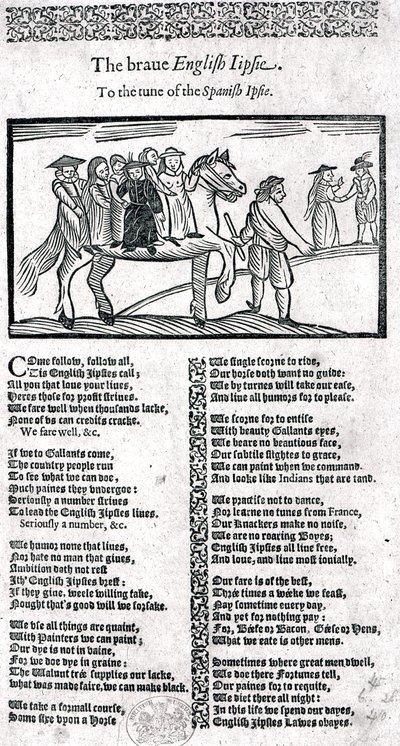 The braue English Iipsie.
To the tune of the Spanish Ipsie.
COme follow, follow all,
'Tis English Jipsies call;
All you that loue your liues,
Heres those for profit striues.
We fare well when thousands lacke,
None of vs can credits cracke.
We fare well, &c.
If we to Gallants come,
The country people run
To see what we can doe,
Such paines they vndergoe:
Seriously a number striues
To lead the English Jipsies liues.
Seriously a number, &c.
We humor none that liues,
Nor hate no man that giues,
Ambition doth not rest
Ith' English Jipsies brest:
If they giue, weele willing take,
Nought that's good will we forsake.
We vse all things are quaint,
With Painters we can paint;
Our dye is not in vaine,
For we doe dye in graine:
The Walnut tree supplies our lacke,
what was made faire, we can make black.
We take a formall course,
Some sixe vpon a Horse
We single scorne to ride,
Our horse doth want no guide:
We by turnes will take our ease,
And liue all humors for to please.
We scorne for to entise
With beauty Gallants eyes,
We beare no beautious face,
Our subtile slightes to grace,
We can paint when we command,
And looke like Indians that are tand.
We practise not to dance,
Nor learne no tunes from France,
Our Knackers make no noise,
We are no roaring Boyes;
English Jipsies all liue free,
And loue, and liue most iouially.
Our fare is of the best,
Three times a weeke we feast,
Nay sometime euery day,
And yet for nothing pay:
For, Beefe or Bacon, Geese or Hens,
What we eate is other mens.
Sometimes where great men dwell,
We doe there Fortunes tell,
Our paines for to requite,
We diet there all night:
In this life we spend our dayes,
English Jipsies Lawes obayes.